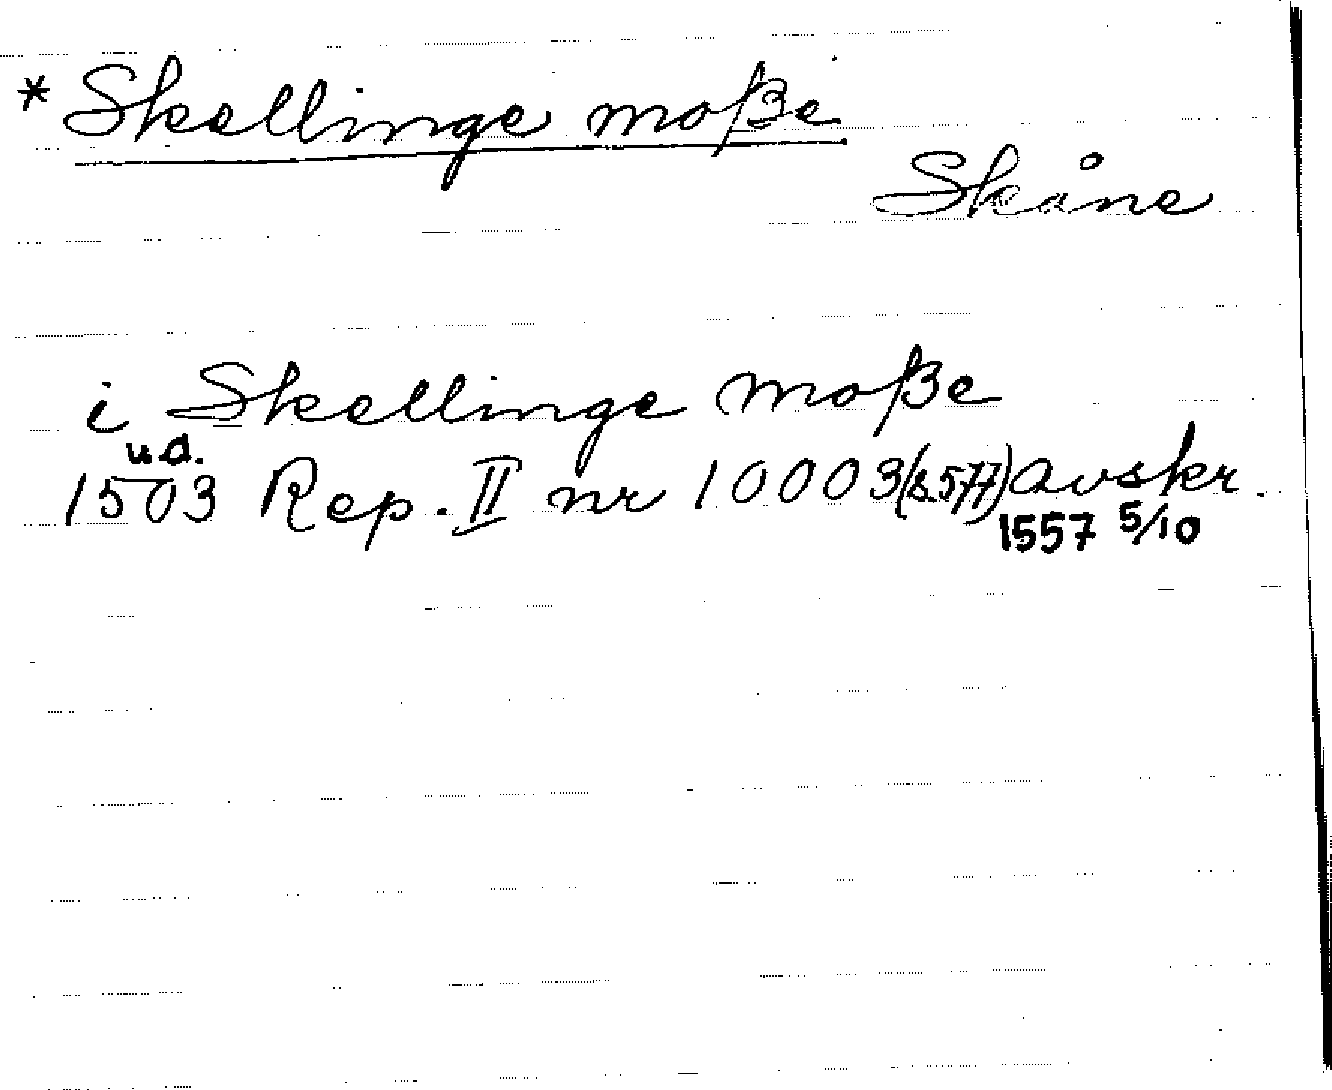 *Skellinge moße
Skåne
i Skellinge moße
u.d.
1503 Rep. II nr 10003 (s.577) avskr.
1557 5/10